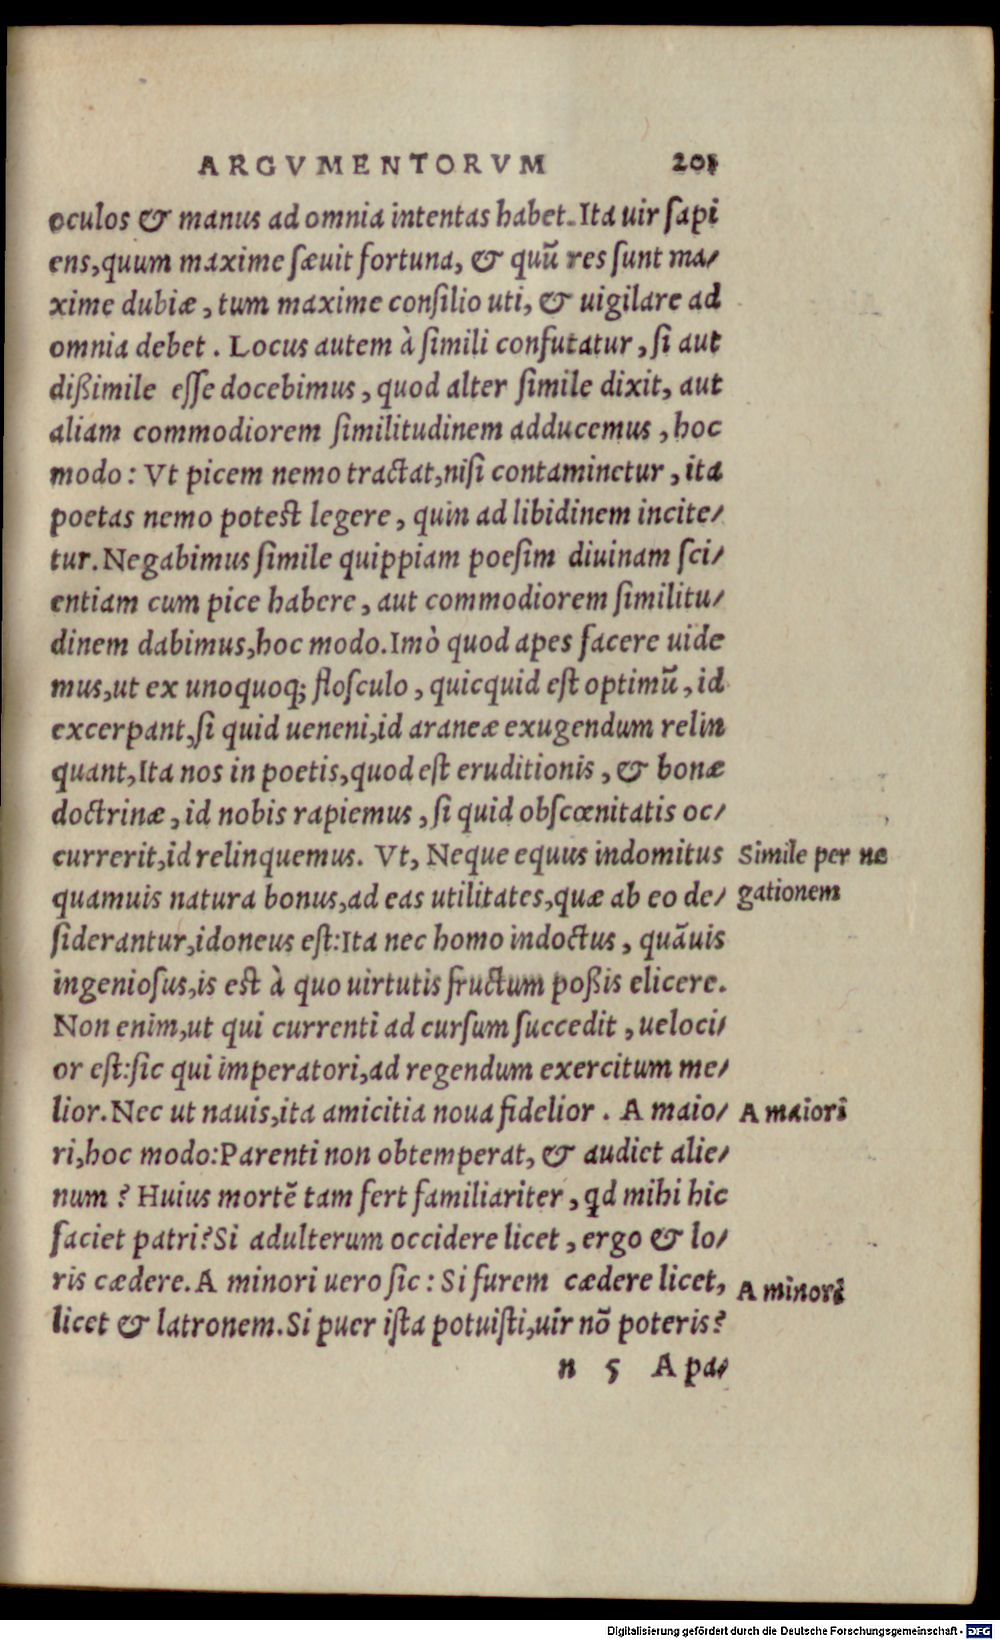 ARGVMENTORVM 201
oculos & manus ad omnia intentas habet. Ita uir sapi
ens, quum maxime sæuit fortuna, & quū res sunt ma/
xime dubiæ, tum maxime consilio uti, & uigilare ad
omnia debet. Locus autem à simili confutatur, si aut
dißimile esse docebimus, quod alter simile dixit, aut
aliam commodiorem similitudinem adducemus, hoc
modo: Vt picem nemo tractat, nisi contaminetur, ita
poetas nemo potest legere, quin ad libidinem incite/
tur. Negabimus simile quippiam poesim diuinam sci/
entiam cum pice habere, aut commodiorem similitu/
dinem dabimus, hoc modo. Imò quod apes facere uide
mus, ut ex unoquoq; flosculo, quicquid est optimū, id
excerpant, si quid ueneni, id araneæ exugendum relin
quant, Ita nos in poetis, quod est eruditionis, & bonæ
doctrinæ, id nobis rapiemus, si quid obscœnitatis oc/
currerit, id relinquemus. Vt, Neque equus indomitus
Simile per ne
quamuis natura bonus, ad eas utilitates, quæ ab eo de/
gationem
siderantur, idoneus est: Ita nec homo indoctus, quāuis
ingeniosus, is est à quo uirtutis fructum poßis elicere.
Non enim, ut qui currenti ad cursum succedit, ueloci/
or est: sic qui imperatori, ad regendum exercitum me/
lior. Nec ut nauis, ita amicitia noua fidelior. A maio/
A maiori
ri, hoc modo: Parenti non obtemperat, & audiet alie/
num? Huius mortē tam fert familiariter, qd mihi hic
faciet patri? Si adulterum occidere licet, ergo & lo/
ris cædere. A minori uero sic: Si furem cædere licet,
A minori
licet & latronem. Si puer ista potuisti, uir nō poteris?
n 5 A pa/
Digitalisierung gefördert durch die Deutsche Forschungsgemeinschaft - DFG